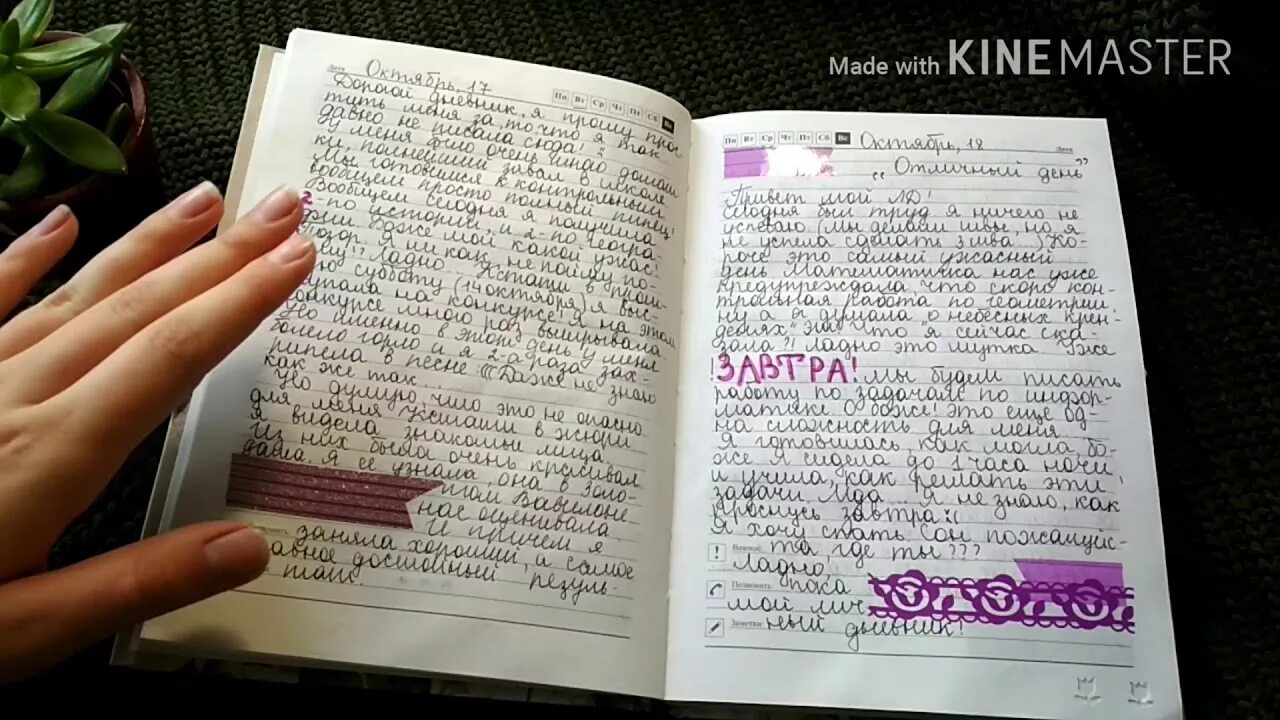 Made with KINEMASTER
Дата Октябрь, 17
Пн Вт Ср Чт Пт Сб Вс
Дорогой дневник, я прошу прос-
тить меня за то, что я так
давно не писала сюда!
У меня было очень много домаш
ки, полнейший завал в школе
Мы готовимся к контрольным
вообщем просто полный
Вообщем сегодня я получила
2 - по истории, и 2-по геогра-
фии Боже мой какой ужас!
ни как не пойму по-
Ладно Кстати в прош-
ую субботу (14 октября) я выс-
тупала на конкурсе! Я на этом
конкурсе много раз выигрывала
Но именно в этот день у меня
болело горло и я 2-а раза зах-
рипела в песне :((( Даже не знаю
как же так
Но думаю, что это не опасно
для меня в жюри
я видела знакомые лица
Из них была очень красивая
дама. Я её узнала, она в Золо-
том Вавилоне
нас оценивала
И причем я
заняла хороший, а самое
авное достойный резуль-
тат.
Пн Вт Ср Чт Пт Сб Вс
Октябрь, 18 Дата
„ Отличный день”
Привет мой ЛД!
Сегодня был труд я ничего не
успеваю (мы делали швы, но я
не успела сделать 3 шва...) Ко-
роче это самый ужасный
день Математичка нас уже
предупреждала что скоро кон-
трольная работа по геометрии
ну а я думала о небесных крен-
делях" Эм! Что я сейчас ска-
зала?! Ладно это шутка Уже
!ЗАВТРА! мы будем писать
работу по задачам по инфор-
матике О боже! Это ещё од-
на сложность для меня
Я готовилась, как могла, бо-
же Я сидела до 1 часа ночи
и учила, как решать эти
задачи Мда... я не знаю, как
проснусь завтра :(
Я хочу спать Сон пожалуйс-
та, где ты???
Важные
Ладно,
Позвонить пока
мой лич
Заметки ный дневник!